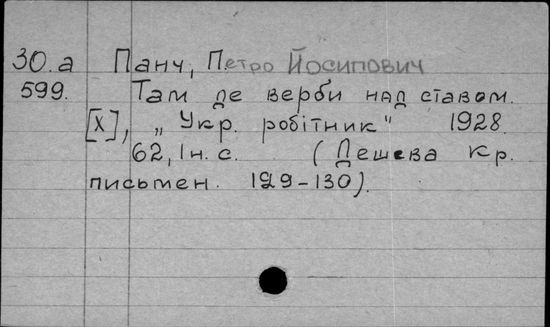 30.а Панч, Петро Йосипович
599. Там де верби над ставом.
[Х], „Укр. робітник" 1928.
62, Iн. с. (Дешева кр.
письмен. 129-130).